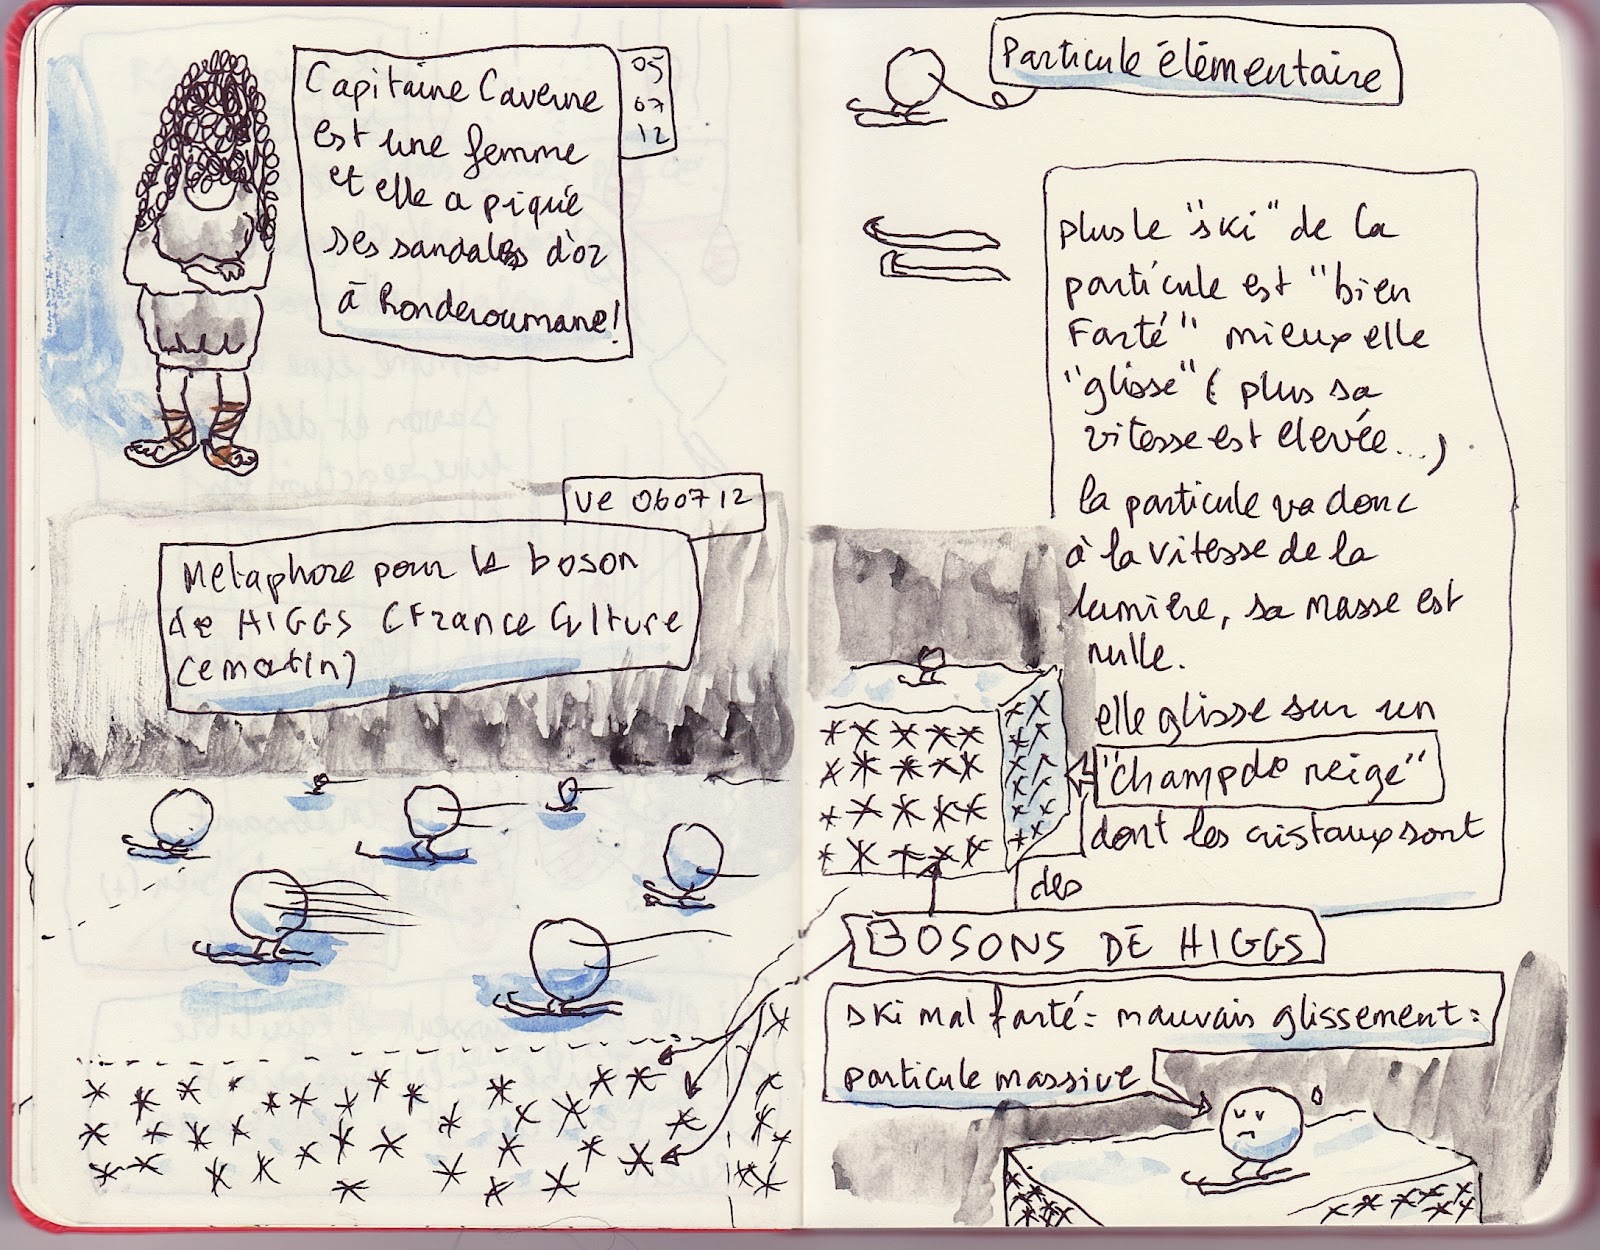 Capitaine Caverne
est une femme
et elle a piqué
ses sandales d'or
à Ronderoumane!
05
07
12
ve 060712
Métaphore pour le boson
de HIGGS (France Culture
ce matin)
Particule élémentaire
plus le "ski" de la
particule est "bien
Farté" mieux elle
"glisse" (plus sa
vitesse est elevée...)
la particule va donc
à la vitesse de la
lumière, sa masse est
nulle.
elle glisse sur un
"champ de neige"
dont les cristaux sont
des
BOSONS DE HIGGS
ski mal farté = mauvais glissement =
particule massive